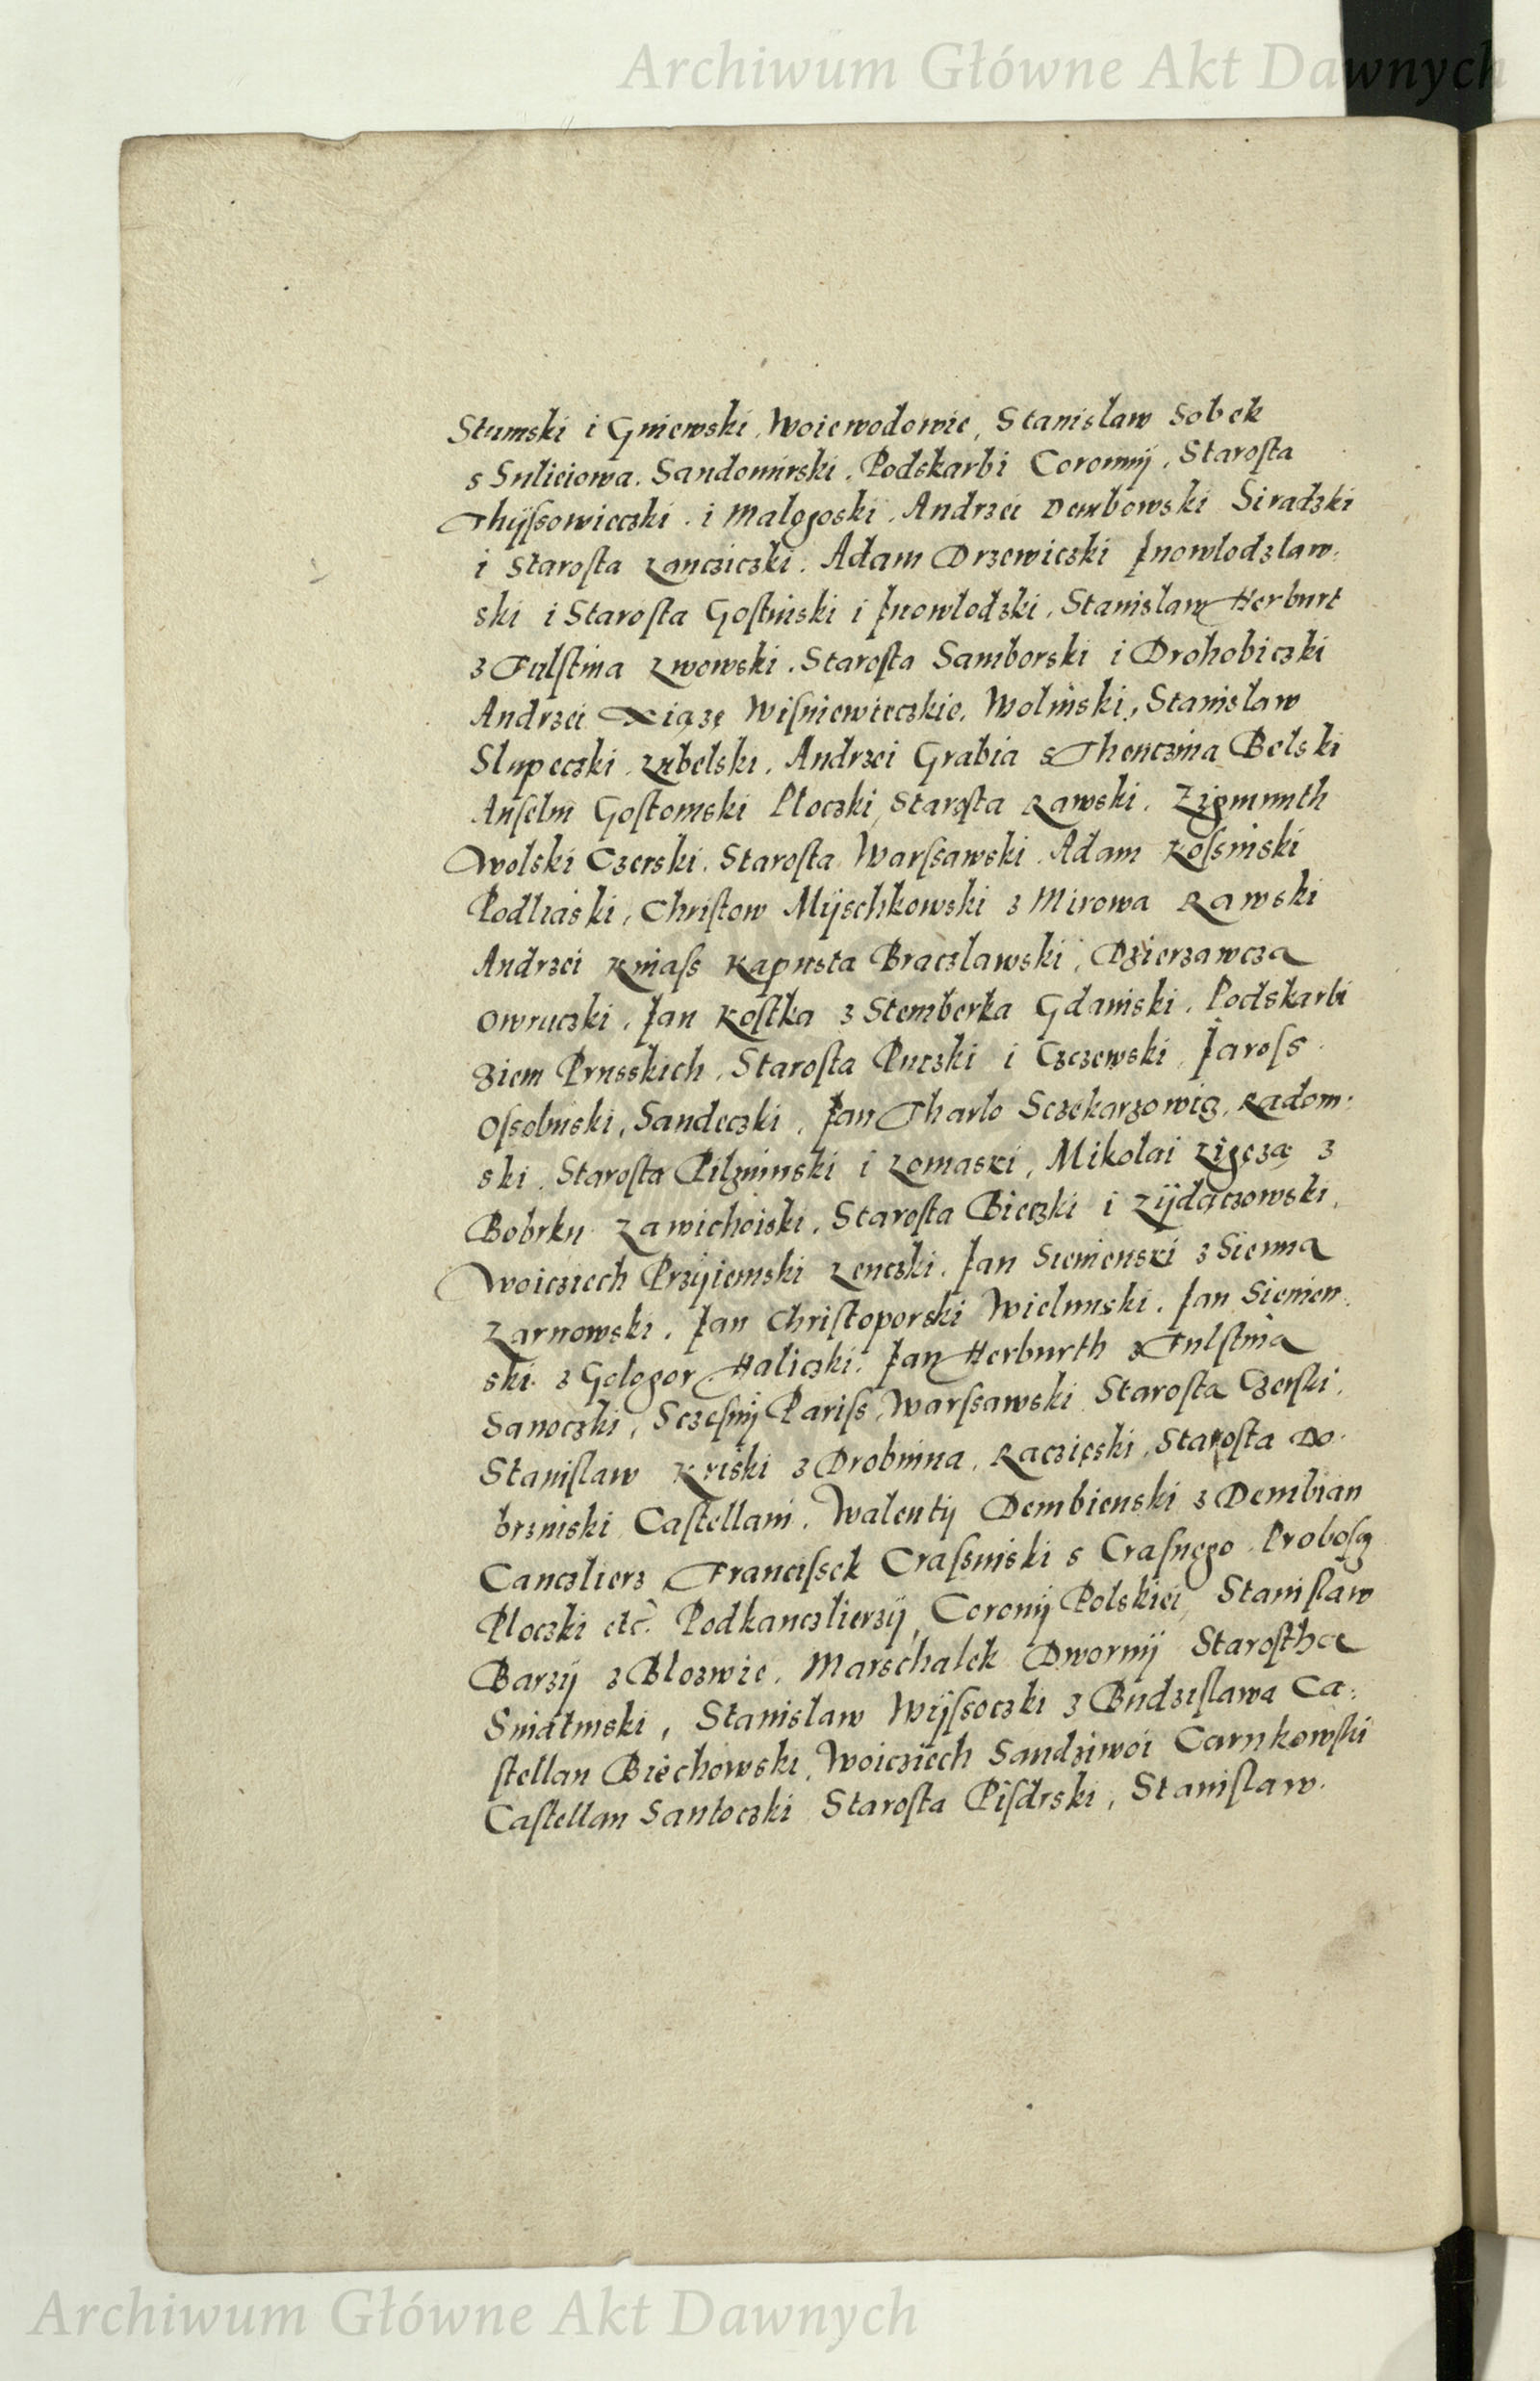 Archiwum Główne Akt Dawnych
Stumski i Gniewski, Woiewodowie, Stanislaw Sobek
s Suliciowa. Sandomirski. Podskarbi Coronnÿ, Staroſta
Thÿſsowieczki. i Malogoski. Andrzei Dembowski Siradzki
i Staroſta Lancziczki. Adam Drzewiczki Jnowlodzlaw-
ski i Staroſta Goſtinski i Jnowlodzki, Stanislaw Herburt
z Fulſtina Lwowski. Staroſta Samborski i Drohobiczki
Andrzei Xiąże Wiſniewieczkie. Wolinski, Stanislaw
Slupeczki. Lubelski. Andrzei Grabia s Thenczina Belski
Anſelm Goſtomski Ploczki, Staroſta Rawski. Zigmunth
Wolski Czerski. Staroſta Warſsawski. Adam Koſsinski
Podlaski, Chriſtow Mÿschkowski z Mirowa Rawski
Andrzei Kniaſs Kapusta Braczlawski, Dzierzawcza
Owruczki. Jan Koſtka z Stemberka Gdanski. Podskarbi
Ziem Prusskich. Staroſta Puczki i Czczewski, Jaroſs
Oſsolinski, Sandeczki, Jan Tharlo Sczekarzowig, Radom:
ski. Staroſta Pilzninski i Lomaski, Mikolai Ligęzą z
Bobrku Zawichoiski. Staroſta Bieczki i Zÿdaczowski,
Woicziech Przÿiemski Lenczki. Jan Siemenski z Sienna
Zarnowski. Jan Chriſtoporski Wielunski. Jan Siemien
ski z Gologor Haliczki. Jan Herburth z Fulſtina
Sanoczki, Sczeſnÿ Pariſs, Warſsawski Staroſta Czerſki,
Staniſlaw Kriski z Drobnina, Raczięski, Staroſta Do-
brzinski Caſtellani. Walentÿ Dembienski z Dembian
Canczlierz Franciſsek Craſsinski s Craſnego Proboſcz
Ploczki etc. Podkanczlierzÿ, Coronÿ Polskiei, Staniſlaw
Barzÿ z Blozwie. Marschalek Dwornÿ Staroſtha
Sniatinski, Stanislaw Wÿſsoczki z Budziſlawa Ca:
ſtellan Biechowski, Woicziech Sandziwoi Czarnkowſki
Caſtellan Santoczki Staroſta Piſdrski, Staniſlaw.
Archiwum Główne Akt Dawnych